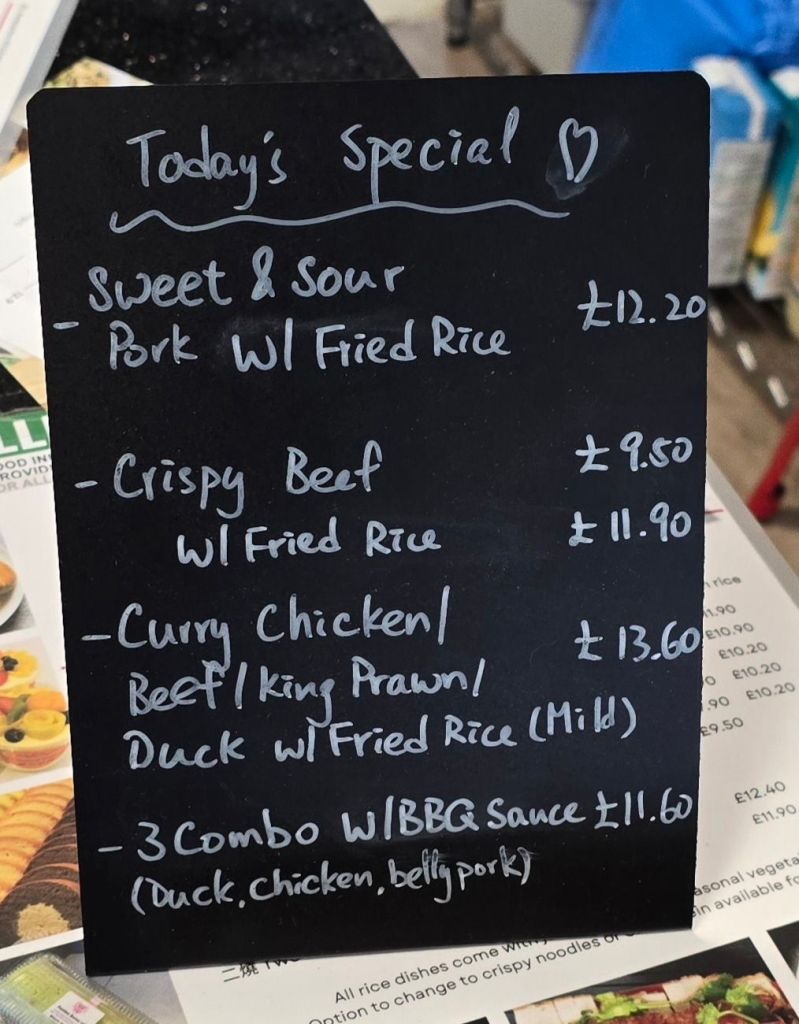 Today's Special ♡
Sweet & Sour
- Pork w/ Fried Rice £12.20
- Crispy Beef £9.50
w/ Fried Rice £11.90
- Curry Chicken/ £13.60
Beef/King Prawn/
Duck w/ Fried Rice (Mild)
- 3 Combo W/BBQ Sauce £11.60
(Duck, Chicken, belly pork)
rice
£10.90
£10.20
£10.20
£10.20
£9.50
£12.40
£11.90
二燒
All rice dishes come
Option to change to crispy noodles
available